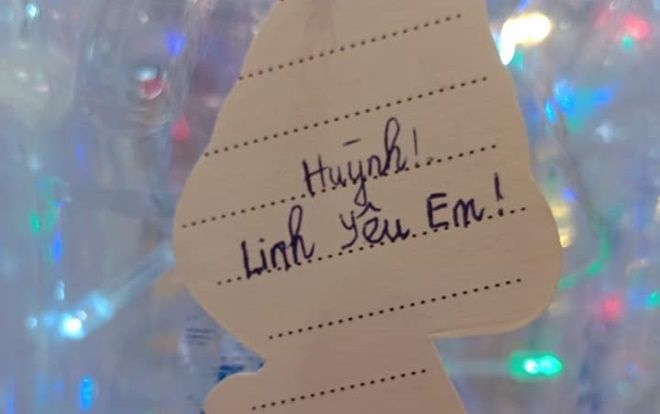 Huỳnh!
Linh yêu Em!